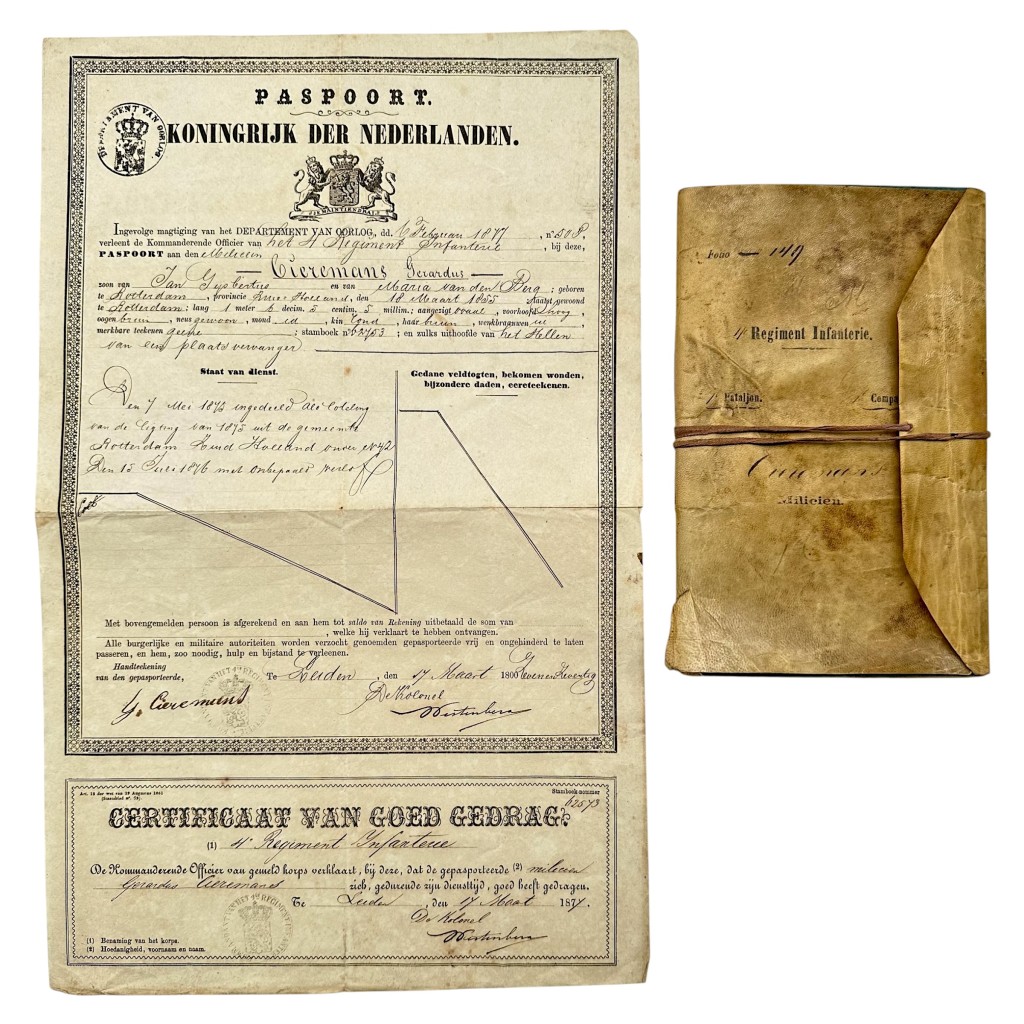 PASPOORT.
DEPARTEMENT VAN OORLOG.
KONINGRIJK DER NEDERLANDEN.
JE MAINTIENDRAI
Ingevolge magtiging van het DEPARTEMENT VAN OORLOG, dd. 6 Februari 1877, n° 50P,
verleent de Kommanderende Officier van het 4e Regiment Infanterie, bij deze,
PASPOORT aan den Milicien
— Cieremans Gerardus —
zoon van Jan Gysbertus en van Maria van den Berg; geboren
te Rotterdam, provincie Zuid Holland, den 18 Maart 1855, laatst gewoond
te Rotterdam; lang 1 meter 6 decim. 5 centim. 5 millim.; aangezigt ovaal, voorhoofd hoog,
oogen bruin, neus gewoon, mond id, kin rond, haar bruin, wenkbraauwen id;
merkbare teekenen geene; stamboek n° 62573; en zulks uithoofde van het stellen
van een plaatsvervanger
Staat van dienst.
Den 7 Mei 1875 ingedeeld als loteling
van de ligting van 1875 uit de gemeente
Rotterdam Zuid Holland onder N° 92
Den 15 Juli 1876 met onbepaald verlof
Gedane veldtogten, bekomen wonden,
bijzondere daden, eereteekenen.
Met bovengemelden persoon is afgerekend en aan hem tot saldo van Rekening uitbetaald de som van
, welke hij verklaart te hebben ontvangen.
Alle burgerlijke en militaire autoriteiten worden verzocht genoemden gepasporteerde vrij en ongehinderd te laten
passeren, en hem, zoo noodig, hulp en bijstand te verleenen.
Handteekening
van den gepasporteerde,
Te Leiden, den 17 Maart 1800 Zeven en Zeventig
De Kolonel
G. Cieremans
Art. 12 der wet van 19 Augustus 1861
(Staatsblad n°. 72).
Stamboek-nommer
62573
CERTIFICAAT VAN GOED GEDRAG.
(1) 4e Regiment Infanterie
De Kommanderende Officier van gemeld korps verklaart, bij deze, dat de gepasporteerde (2) milicien
Gerardus Cieremans zich, gedurende zijn diensttijd, goed heeft gedragen.
Te Leiden, den 17 Maart 1877.
De Kolonel
(1) Benaming van het korps.
(2) Hoedanigheid, voornaam en naam.
Folio — 149
4e Regiment Infanterie.
Bataljon. Compa
Cieremans
Milicien.